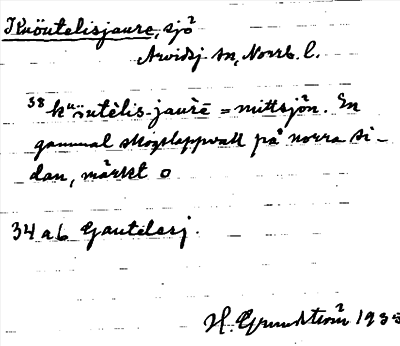 Kuöutelisjaure, sjö
Arvidsj sn, Norrb. l.
38 kuöutelis-jaurē = mittsjön. En
gammal skogslappvall på norra si-
dan, märkt o
34 a b Gautelesj.
H. Grundström 1933